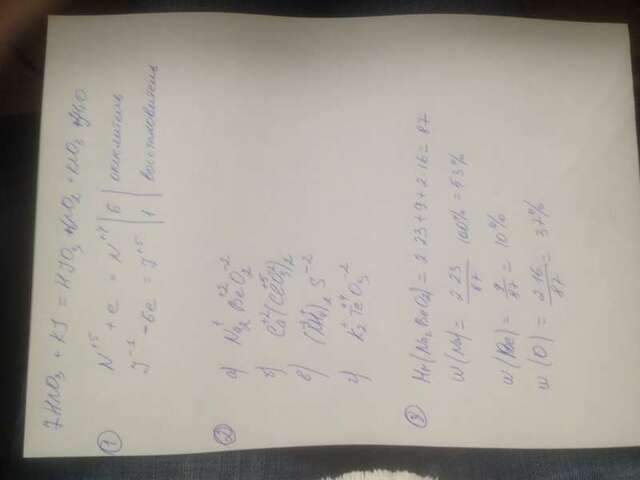 7HNO₃ + KJ = HJO₃ + 6NO₂ + KNO₃ + 3H₂O
① N⁺⁵ + e = N⁺⁴ | 6 | окислитель
J⁻¹ - 6e = J⁺⁵ | 1 | восстановитель
② а) Na₂⁺Be⁺²O₂⁻²
б) Ca⁺²(Cl⁺⁵O₃⁻²)₂
в) (N⁻³H₄⁺)₂S⁻²
г) K₂⁺Te⁺⁴O₃⁻²
③ Mr(Na₂BeO₂) = 2·23+9+2·16= 87
w(Na)= 2·23/87 100% = 53%
w(Be) = 9/87 = 10%
w(O) = 2·16/87 = 37%